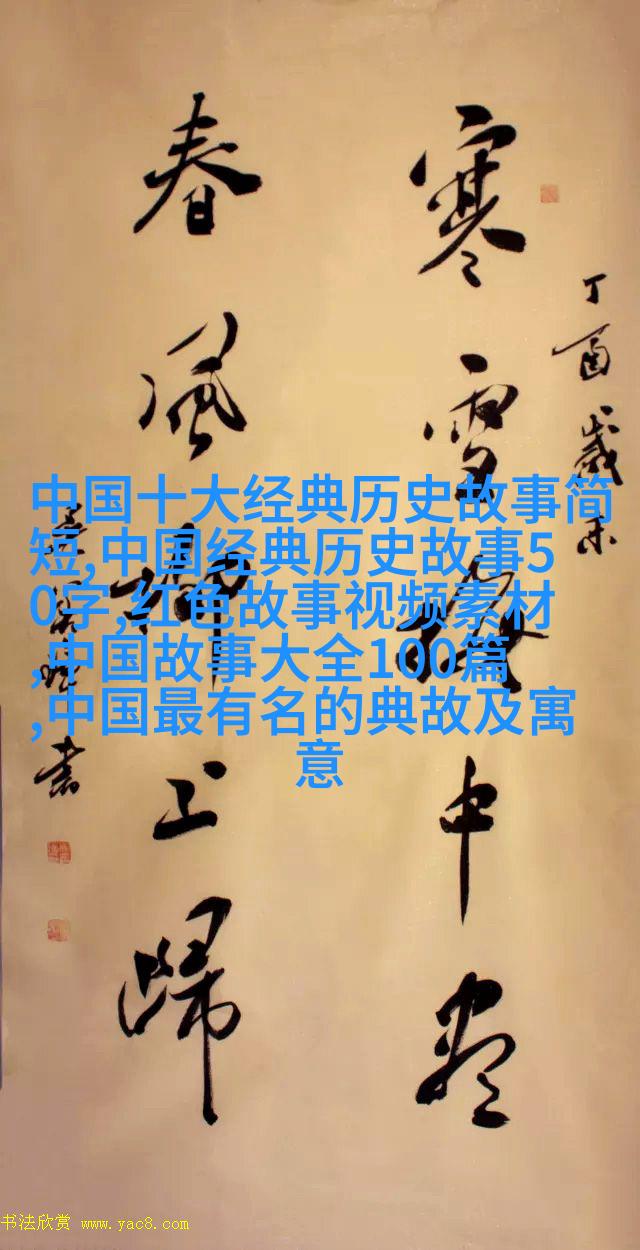 丁酉歲末
寒雪梅中尽
春風柳上歸
書
中国十大经典历史故事简
短,中国经典历史故事5
0字,红色故事视频素材
,中国故事大全100篇
,中国最有名的典故及寓
意
书法欣赏 www.yac8.com